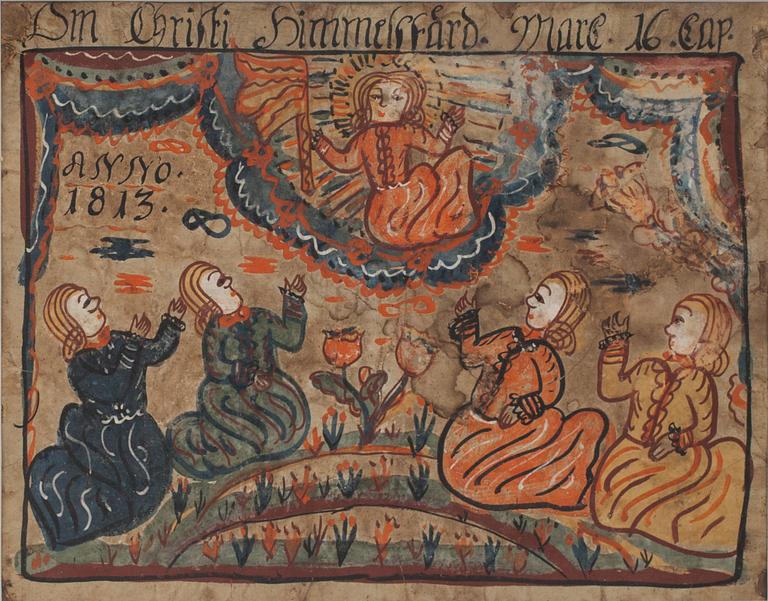 Om Christi Himmelsfärd. Marc. 16. Cap.
ANNO.
1813.